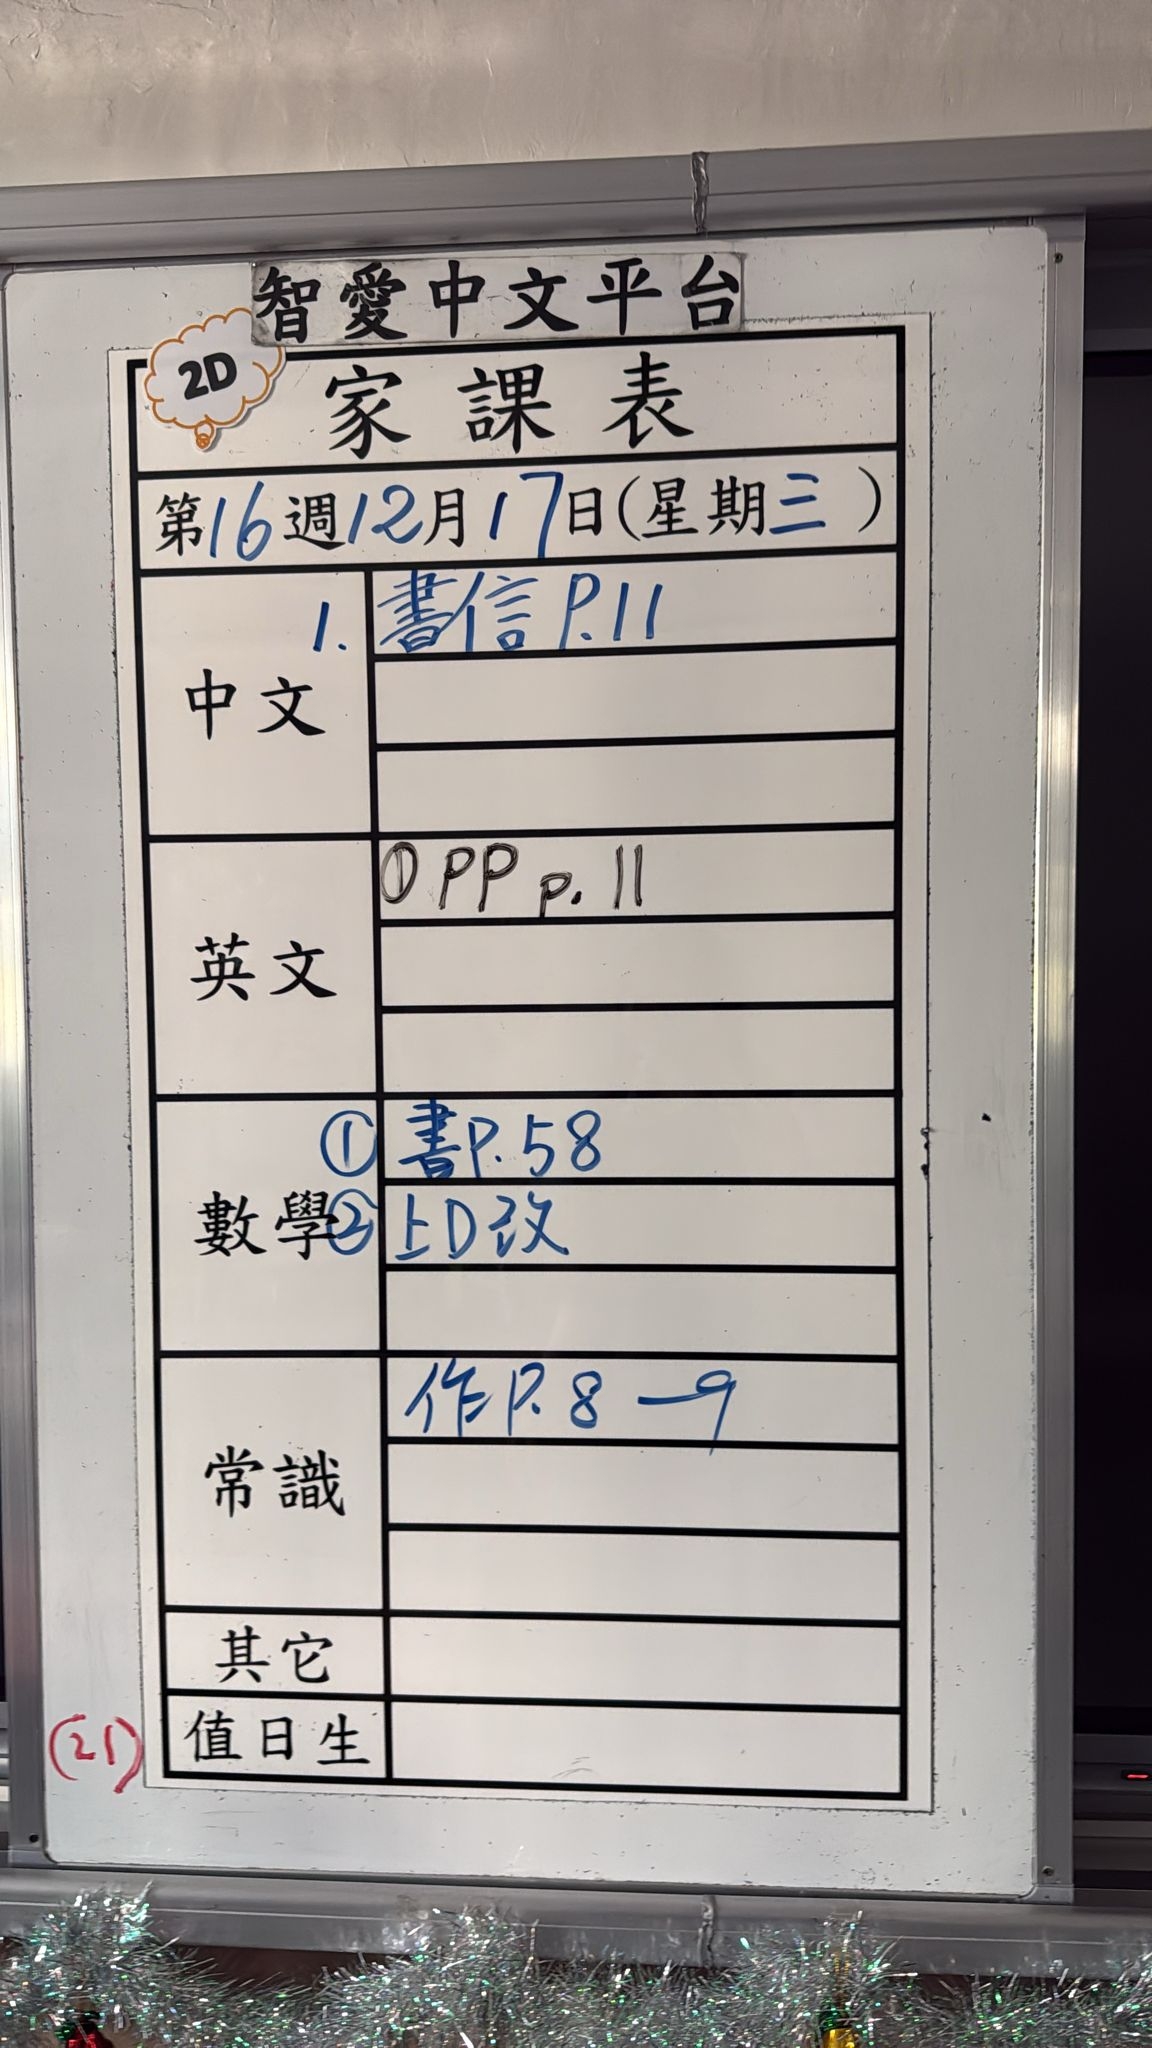 智愛中文平台
2D
家課表
第16週12月17日(星期三)
中文
1. 書信 P.11
英文
① PP p. 11
數學
① 書P.58
② 上D改
常識
作P. 8—9
其它
值日生
(21)